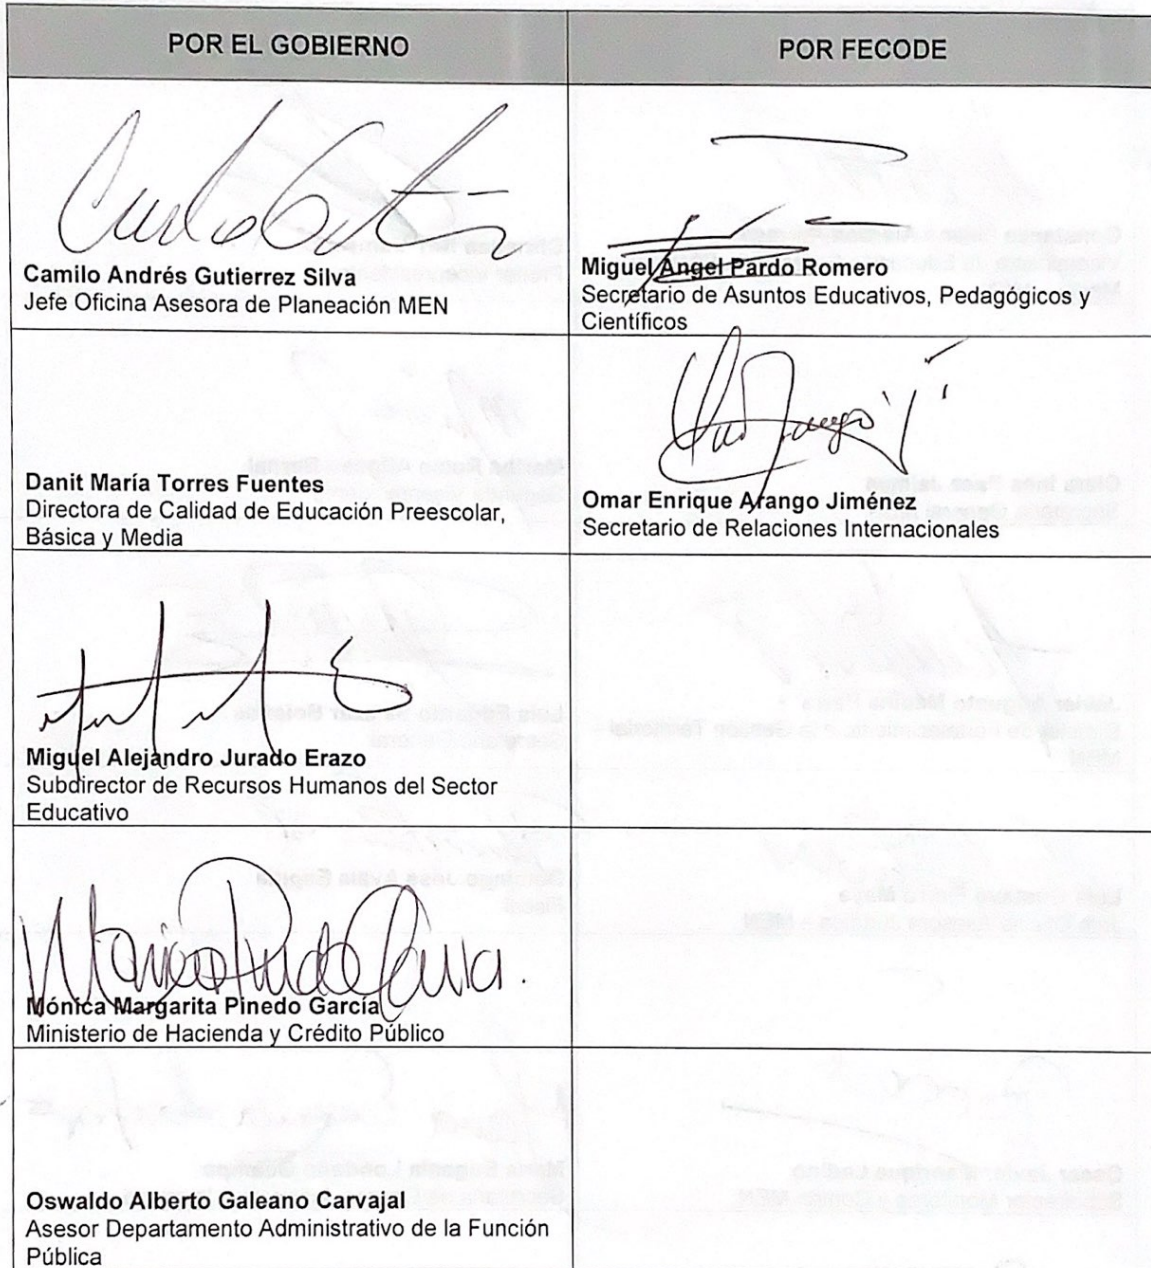 POR EL GOBIERNO
POR FECODE
Camilo Andrés Gutierrez Silva
Jefe Oficina Asesora de Planeación MEN
Miguel Ángel Pardo Romero
Secretario de Asuntos Educativos, Pedagógicos y
Científicos
Danit María Torres Fuentes
Directora de Calidad de Educación Preescolar,
Básica y Media
Omar Enrique Arango Jiménez
Secretario de Relaciones Internacionales
Miguel Alejandro Jurado Erazo
Subdirector de Recursos Humanos del Sector
Educativo
Mónica Margarita Pinedo García
Ministerio de Hacienda y Crédito Público
Oswaldo Alberto Galeano Carvajal
Asesor Departamento Administrativo de la Función
Pública